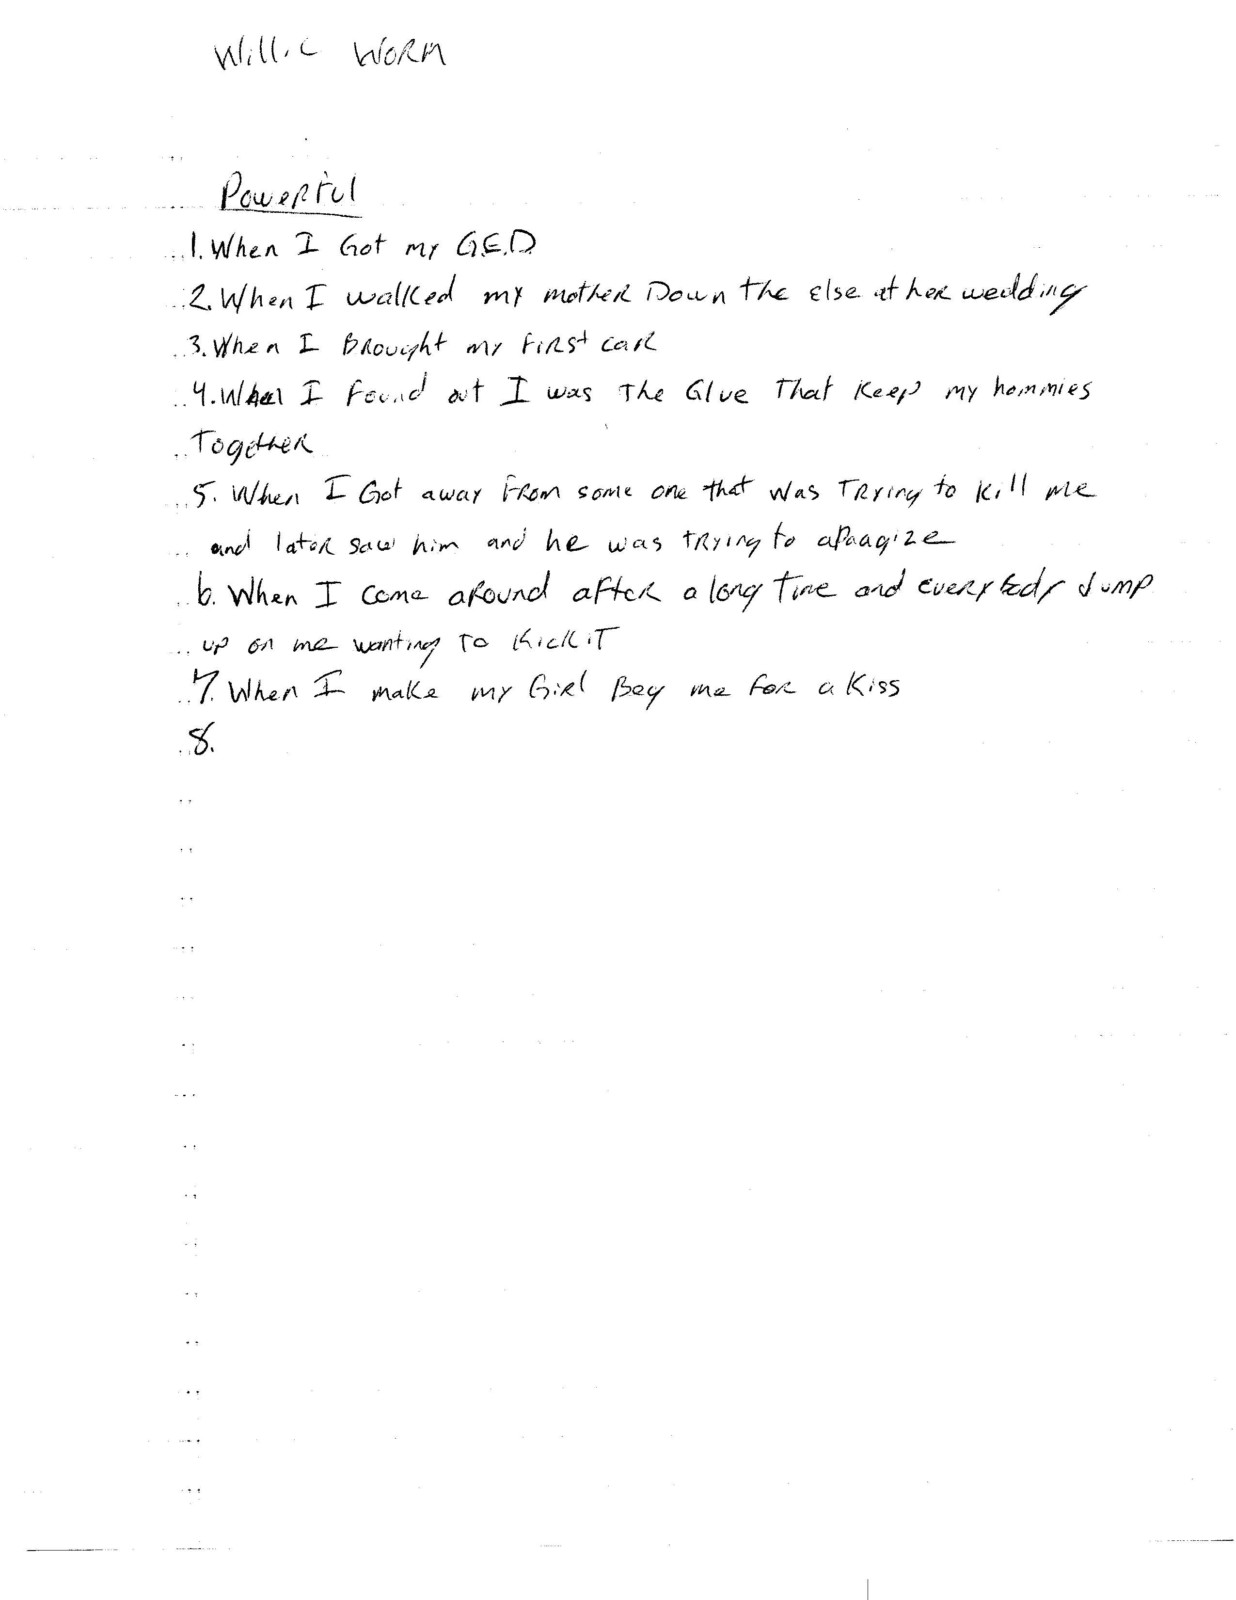 Willie Worm
Powerful
1. When I Got my G.E.D
2. When I walked my mother Down the else at her wedding
3. When I Brought my first car
4. When I found out I was The Glue That Keep my hommies
Together
5. When I Got away From some one that was Trying to kill me
and later saw him and he was trying to apoagize
6. When I come around after a long Time and everybody Jump
up on me wanting To Kick iT
7. When I make my Girl Beg me for a Kiss
8.